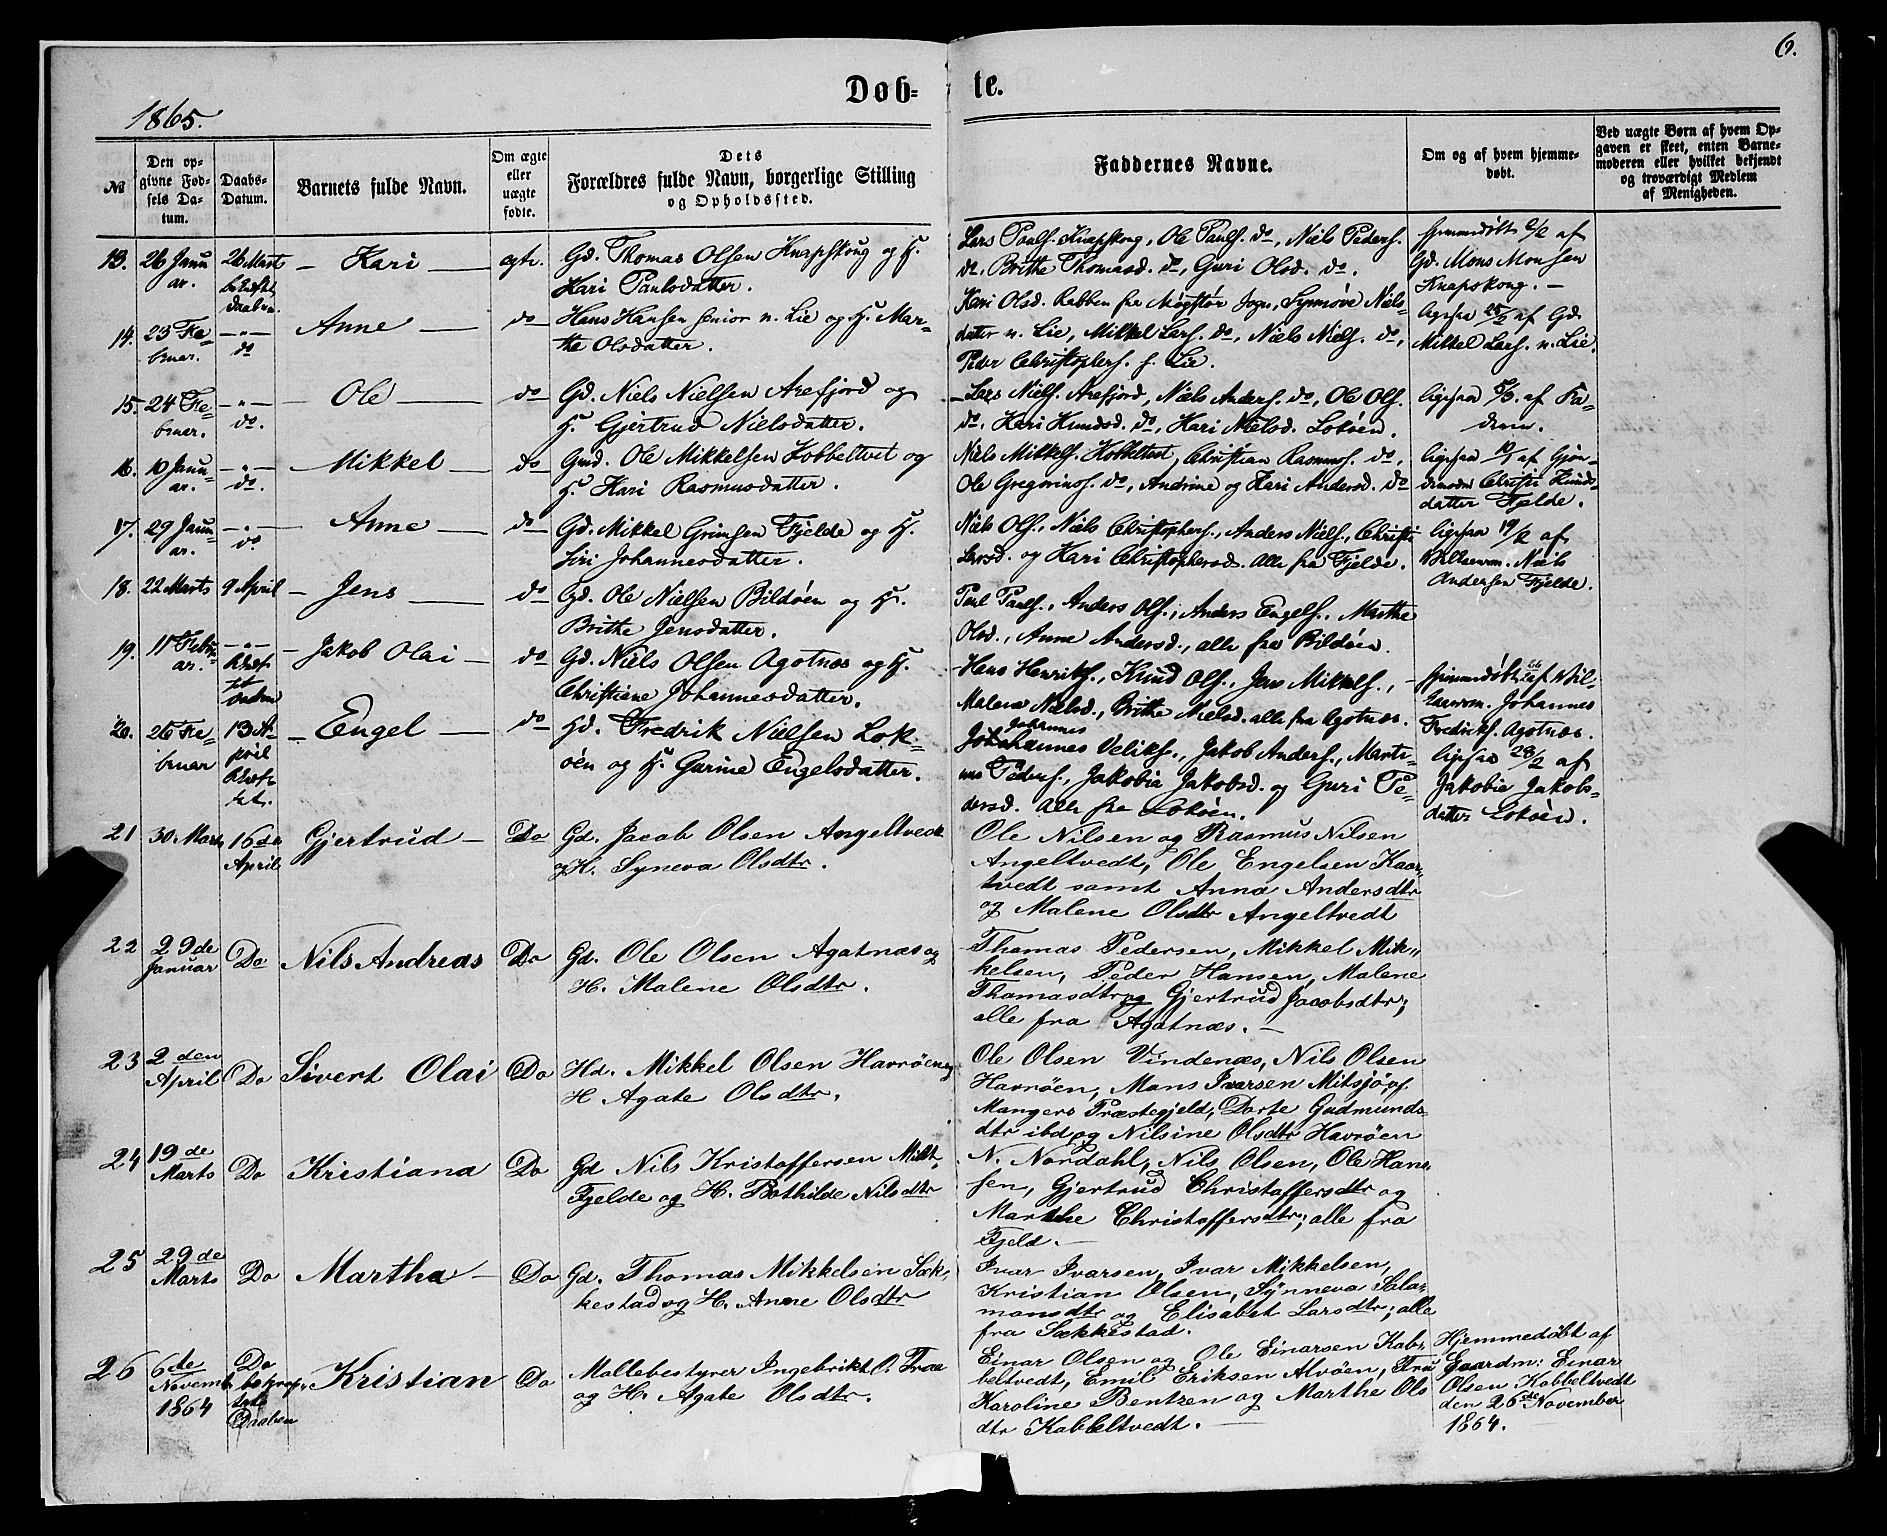 6.
Døb- te.
1865.
№
Den opgivne Fødsels Datum.
Daabs-Datum.
Barnets fulde Navn.
Om ægte eller uægte fødte.
Dets Forældres fulde Navn, borgerlige Stilling og Opholdssted.
Faddernes Navne.
Om og af hvem hjemmedøbt.
Ved uægte Børn af hvem Opgaven er skeet, enten Barnemoderen eller hvilket bekjendt og troværdigt Medlem af Menigheden.
13. 26 Januar. 26 Marts Daaben. Kari ægte. Gd. Thomas Olsen Knapskoug og H.
Kari Paulsdatter.
Lars Pauls. Knapskog, Ole Pauls. do, Niels Peders.
do. Brithe Thomasd. do, Guri Olsd. do.
hjemmedøbt af
Gd. Mons Monsen
Knapskong.
14. 23 Februar. do Anne do Hans Hansen senior n. Lie og H. Mar-
the Olsdatter.
Kari Olsd. Rabben fra Møgster Sogn, Synnøve Niels-
datter n. Lie, Mikkel Lars. do, Niels Niels. do,
Peder Christophers. f. Lie.
ligesaa 25/2 af Gd.
Mikkel Lars. n. Lie.
15. 24 Februar. do. Ole do Gd. Niels Nielsen Arefjord og
H. Gjertrud Nielsdatter.
Lars Niels. Arefjord, Niels Anders. do, Ole Ols.
do. Kari Knudsd. do, Kari Nielsd. Lokøen.
ligesaa af Fa-
deren.
16. 10 Januar. do. Mikkel do Gmd. Ole Mikkelsen Kobbeltvet og
H. Kari Rasmusdatter.
Niels Mikkels. Kobbeltvet, Christian Rasmus. do,
Ole Gregorius. do, Andrine og Kari Andersd. do
ligesaa af Gjor-
demoder Christi Knuds-
datter Fjelde.
17. 29 Januar. do Anne do Gd. Mikkel Grimsen Fjelde og H.
Siri Johannesdatter.
Niels Ols., Niels Christophers., Anders Niels., Christi
Larsd. og Kari Christophersd. Alle fra Fjelde.
ligesaa 19/2 af
Niels
Andersen Fjelde.
18. 22 Marts 9 April Jens do Gd. Ole Nielsen Bildøen og H.
Brithe Jensdatter.
Poul Pauls., Anders Ols., Anders Engels., Marthe
Olsd., Anne Andersd., alle fra Bildøen.
19. 11 Februar. Jakob Olai do Gd. Niels Olsen Agotnæs og H.
Christiane Johannesdatter.
Hans Henriks., Knud Ols., Jens Mikkels.,
Malene Nielsd., Brithe Nielsd. alle fra Agotnæs.
hjemmedøbt af
Johannes
Fredriks. Agotnæs.
20. 26 Februar 13 April Engel do Gd. Fredrik Nielsen Lok-
øen og H. Gurine Engelsdatter.
Johannes
Johannes Veliks., Jakob Anders., Marti-
nus Peders., Jakobia Jakobsd. og Guri Pe-
dersd. Alle fra Lokøen.
ligesaa 28/2 af
Jakobia Jakobs-
datter Lokøen.
21 30 Marts 16de April Gjertrud Do Gd. Jacob Olsen Angeltvedt
og H. Syneva Olsdtr.
Ole Nilsen og Rasmus Nilsen
Angeltvedt, Ole Engelsen Kaar-
tvedt samt Anna Andersdtr
og Malene Olsdtr Angeltvedt
22 29de Januar Do Nils Andreas Do Gd. Ole Olsen Agatnæs og
H. Malene Olsdtr.
Thomas Pedersen, Mikkel Mik-
kelsen, Peder Hansen, Malene
Thomasdtr og Gjertrud Jacobsdtr;
alle fra Agatnæs.
23 2den April Do Sivert Olai Do Hd. Mikkel Olsen Havrøen og
H. Agate Olsdtr.
Ole Olsen Vindenæs, Nils Olsen
Havrøen, Mans Ivarsen Mitsjø pf.
Mangers Præstegjeld, Dorte Gudmunds-
dtr ibd og Nilsine Olsdtr Havrøen
24 19de Marts Do Kristiana Do Gd Nils Kristoffersen Midt-
Fjelde og H. Bothilde Nilsdtr
N. Nordahl, Nils Olsen, Ole Han-
sen, Gjertrud Christoffersdtr og
Marthe Christoffersdtr; alle fra
Fjeld.
25 29de Marts Do Martha Do Gd. Thomas Mikkelsen Sæk-
kestad og H. Anne Olsdtr
Ivar Ivarsen, Ivar Mikkelsen,
Kristian Olsen, Synneva Salo-
monsdtr og Elisabet Larsdtr; alle
fra Sækkestad.
26 6te Novemb. 1864 Do Daaben Kristian Do Møllebestyrer Ingebrikt O. Træe
og H. Agate Olsdtr.
Einar Olsen og Ole Einarsen Kab-
beltvedt, Emil Eriksen Alvøen, Fru
Karoline Bentzen og Marthe Ols
dtr Kabbeltvedt.
Hjemmedøbt af
Gaardm: Einar
Olsen Kobbeltvedt
den 26de November
1864.